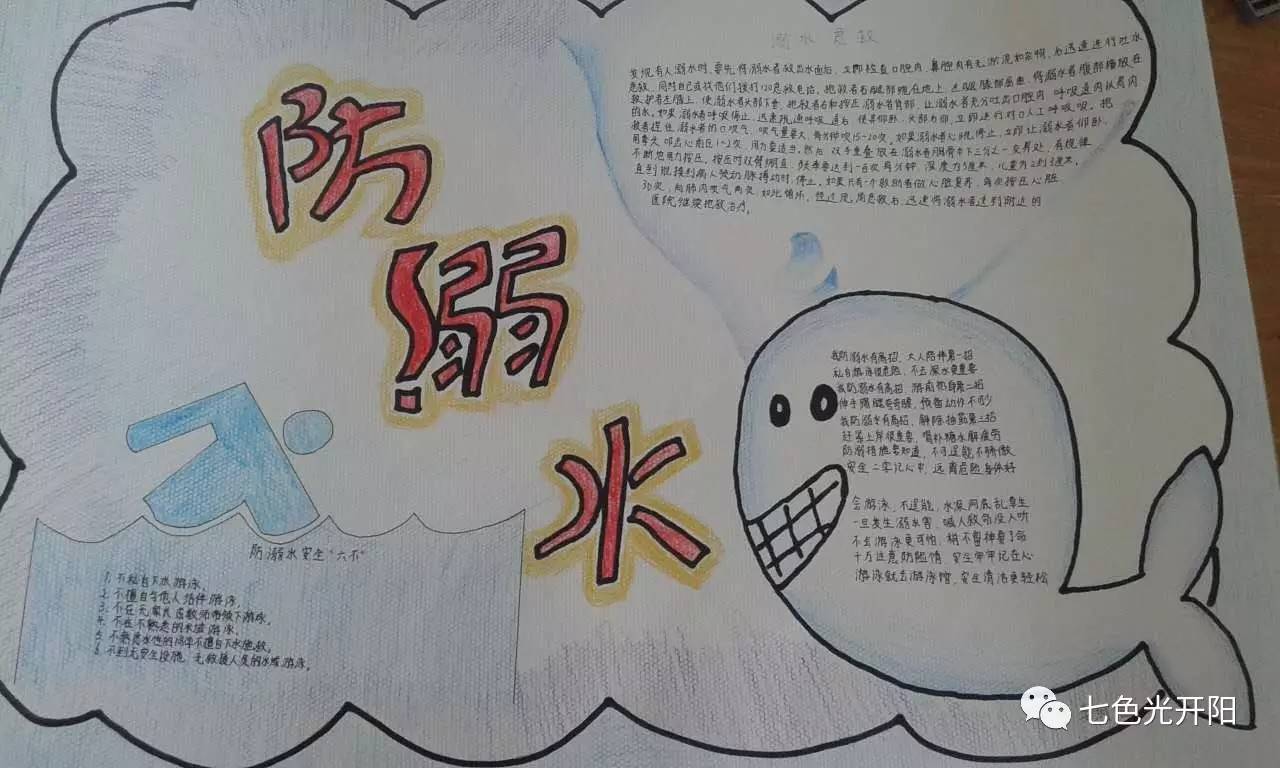 防溺水
溺水急救
发现有人溺水时，要先将溺水者救出水面后，立即检查口腔内、鼻腔内有无淤泥和杂物，后迅速进行吐水
急救，同时自己或找他们拨打120急救电话。把救者右腿部跪在地上，左腿膝部屈曲，将溺水者腹部横放在
救护者左腿上，使溺水者头部下垂，把救者右手按压溺水者背部，让溺水者充分吐出口腔内、呼吸道内以及胃内
的水。如果溺水者呼吸停止，迅速疏通呼吸道后，使其仰卧，头部后仰，立即进行对口人工呼吸。把
救者捏住溺水者的口吹气，吹气量要大，每分钟吹15-20次。如果溺水者心跳停止，立即让溺水者仰卧，
用拳头叩击心前区1-2次，用力要适当，然后双手重叠放在溺水者胸骨中下三分之一交界处，有规律
不断地用力按压，按压时双臂绷直，频率要达到一百次每分钟，深度为5厘米，儿童为2到3厘米。
直到既摸到病人颈动脉搏动时，停止。如果只有一个救助者做心脏复苏，每次按压心脏
30次，向肺内吹气两次，如此循环，经过现场急救后，迅速将溺水者送到附近的
医院继续抢救治疗。
防溺水安全“六不”
1. 不私自下水游泳。
2. 不擅自与他人结伴游泳。
3. 不在无家长或教师带领下游泳。
4. 不在不熟悉的水域游泳。
5. 不熟悉水性的同学不擅自下水施救。
6. 不到无安全设施、无救援人员的水域游泳。
我防溺水有高招，大人陪伴第一招
私自游泳很危险，不去深水更重要
我防溺水有高招，游前热身第二招
伸手踢腿弯弯腰，预备动作不可少
我防溺水有高招，解除抽筋第三招
赶紧上岸很重要，喝补糖水解疲劳
防溺措施要知道，不可逞能不骄傲
安全二字记心中，远离危险身体好
会游泳，不逞能，水深网底乱草生
一旦发生溺水害，喊人救命没人听
不去游泳更可怕，稍不留神要了命
千万注意防险情，安全牢牢记在心
游泳就去游泳馆，安全清洁更轻松
七色光开阳